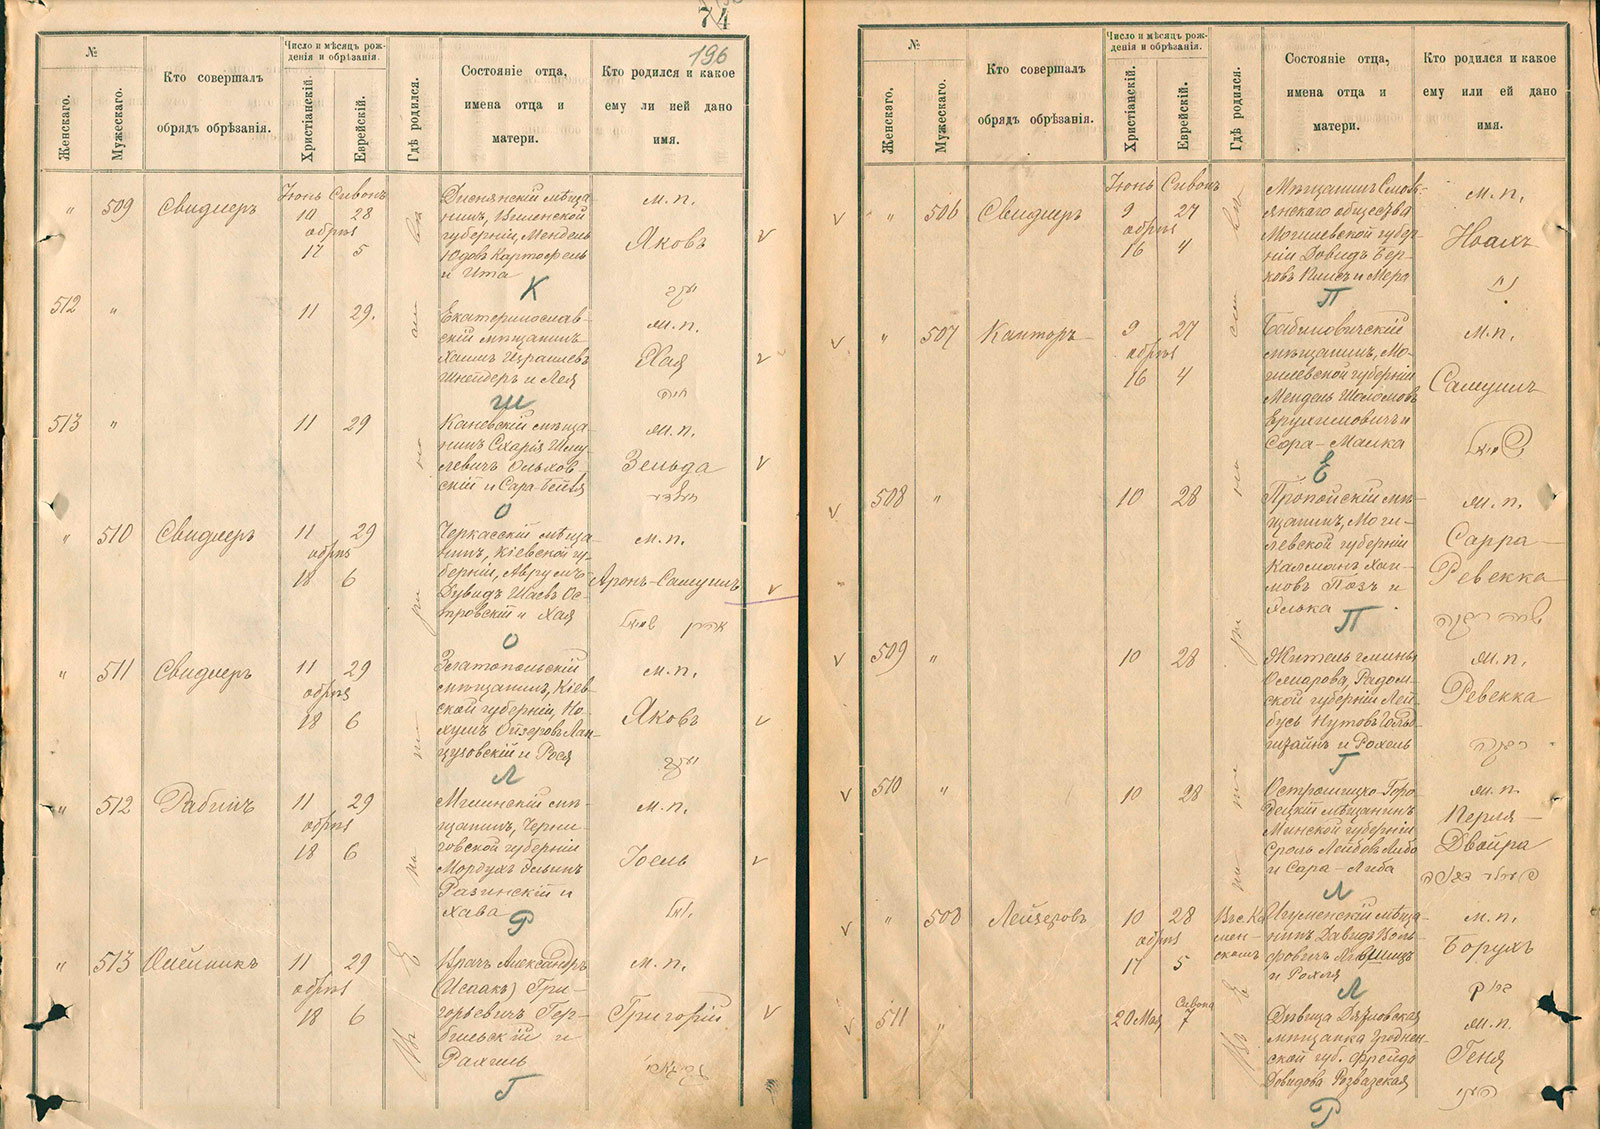 74
196
№
Женскаго.
Мужескаго.
Кто совершалъ
обрядъ обрѣзанія.
Число и мѣсяцъ рож-
денія и обрѣзанія.
Христіанскій.
Еврейскій.
Гдѣ родился.
Состояніе отца,
имена отца и
матери.
Кто родился и какое
ему ли ней дано
имя.
"
509
Свидлеръ
Іюнь Сивонъ
10 28
обрѣз
17 5
Диснянскій мѣща-
нинъ, Виленской
губерніи, Мендель
Юдовъ Картофель
и Ита
К
м.п.
Яковъ
יעקב
512
"
11 29.
Екатеринослав-
скій мѣщанинъ
Хаимъ Израилевъ
Шнейдеръ и Лея
Ш
м.п.
Хая
חיה
513
"
11 29
Каневскій мѣща-
нинъ Схарія Шму-
левичъ Ольхов-
скій и Сара-Бейля
О
м.п.
Зельда
"
510
Свидлеръ
11 29
обрѣз
18 6
Черкасскій мѣща-
нинъ, Кіевской гу-
берніи, Аврумъ-
Дувидъ Шаевъ Ос-
тровскій и Хая
О
м.п.
Аронъ-Самуилъ
אהרן שמואל
"
511
Свидлеръ
11 29
обрѣз
18 6
Златопольскій
мѣщанинъ, Кіев-
ской губерніи, Но-
хумъ Ойзеровъ Лан-
цузовскій и Рося
Л
м.п.
Яковъ
יעקב
"
512
Рабинъ
11 29
обрѣз
18 6
Мглинскій мѣ-
щанинъ, Черни-
говской губерніи
Мордухъ Эльинъ
Разинскій и
Хава
Р
м.п.
Іоель
יואל
"
513
Олейникъ
11 29
обрѣз
18 6
Врачъ Александръ
(Исаакъ) Гри-
горьевичъ Гер-
бильскій и
Рахиль
Г
м.п.
Григорій
№
Женскаго.
Мужескаго.
Кто совершалъ
обрядъ обрѣзанія.
Число и мѣсяцъ рож-
денія и обрѣзанія.
Христіанскій.
Еврейскій.
Гдѣ родился.
Состояніе отца,
имена отца и
матери.
Кто родился и какое
ему или ей дано
имя.
"
506
Свидлеръ
Іюнь Сивонъ
9 27
обрѣз
16 4
Мѣщанинъ Смоль-
янскаго общества
Могилевской губер-
ніи Довидъ Бер-
ковъ и Мера
П
м.п.
Ноахъ
נח
"
507
Канторъ
9 27
обрѣз
16 4
Бабиновичскій
мѣщанинъ, Мо-
гилевской губерніи
Мендель Шоломовъ
Ерухимовичъ и
Сора-Малка
Е
м.п.
Самуилъ
שמואל
508
"
10 28
Пропойскій мѣ-
щанинъ, Моги-
левской губерніи
Калманъ Хаи-
мовъ Позъ и
Элька
П
м.п.
Сарра-
Ревекка
שרה רבקה
509
"
10 28
Житель гмины
Ожарова, Радом-
ской губерніи Лей-
бусь Нутовъ Гольд-
штайнъ и Рохель
Г
м.п.
Ревекка
רבקה
510
"
10 28
Острошицко-Горо-
децкій мѣщанинъ
Минской губерніи
Сроль Лейбовъ Либо
и Сара-Либа
Л
м.п.
Перля-
Двойра
פערל דבורה
"
508
Лейзеровъ
10 28
обрѣз
17 5
Въ с. Ка-
мен-
скомъ
Игуменскій мѣща-
нинъ Давидъ Воль-
фовичъ Лившицъ
и Рохля
Л
м.п.
Борухъ
ברוך
511
"
20 Мая
Сивона
7
Дѣвица Дятловская
мѣщанка Гроднен-
ской губ. Фрейда
Довидова Розвазская
Р
м.п.
Геня